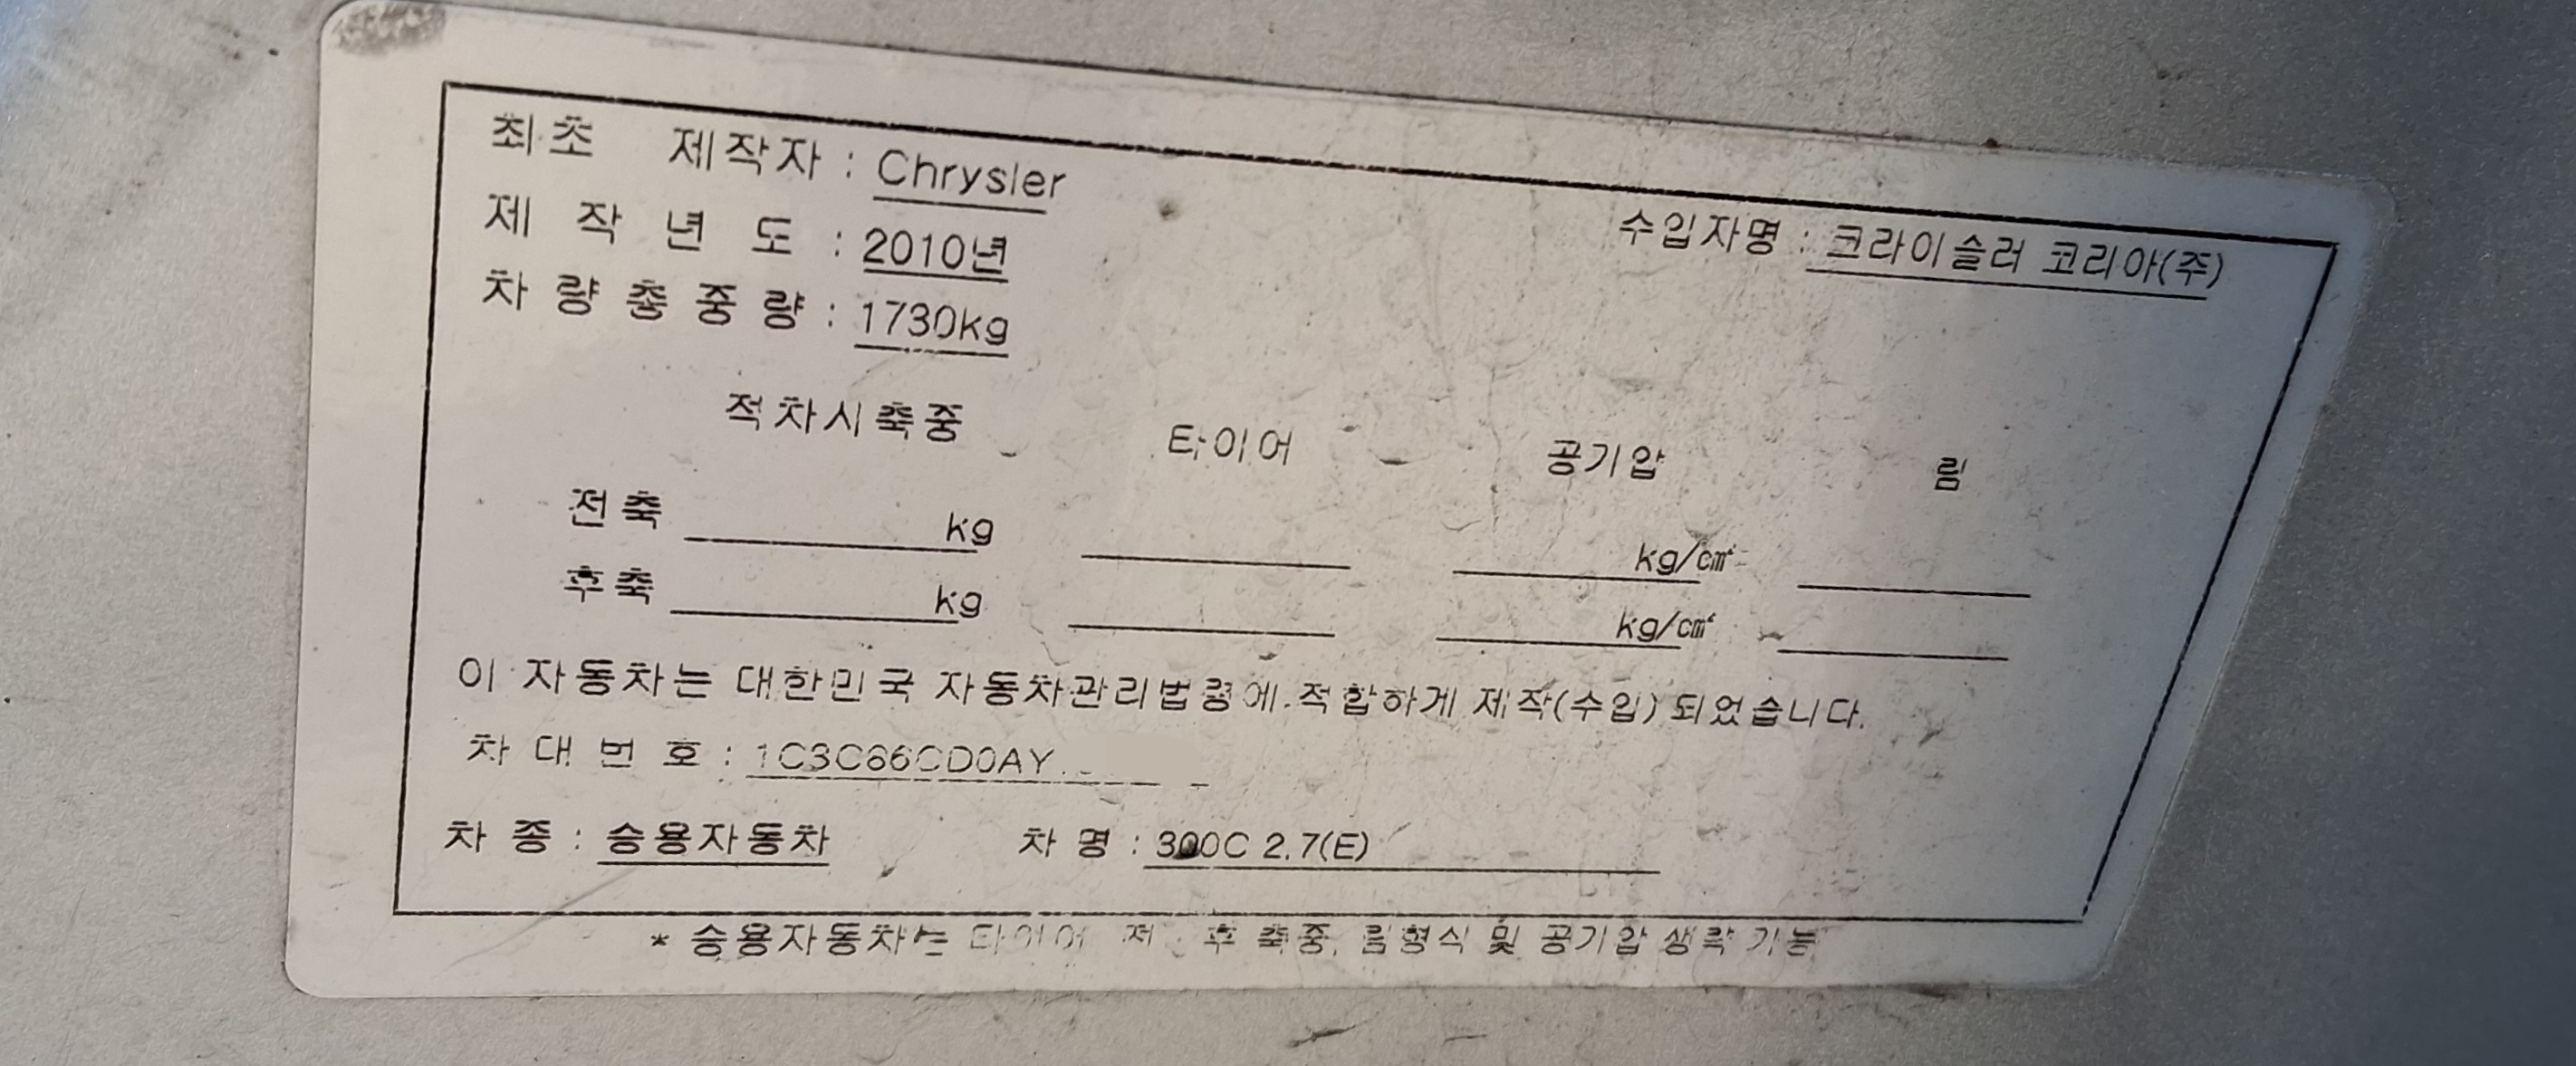 최초 제작자 : Chrysler
제작년도 : 2010년
수입자명 : 크라이슬러 코리아(주)
차량총중량 : 1730kg
적차시축중 타이어 공기압 림
전축 kg kg/㎠
후축 kg kg/㎠
이 자동차는 대한민국 자동차관리법령에 적합하게 제작(수입) 되었습니다.
차대번호 : 1C3C66CD0AY
차종 : 승용자동차 차명 : 300C 2.7(E)
* 승용자동차는 타이어 후 축중, 림형식 및 공기압 생략 가능